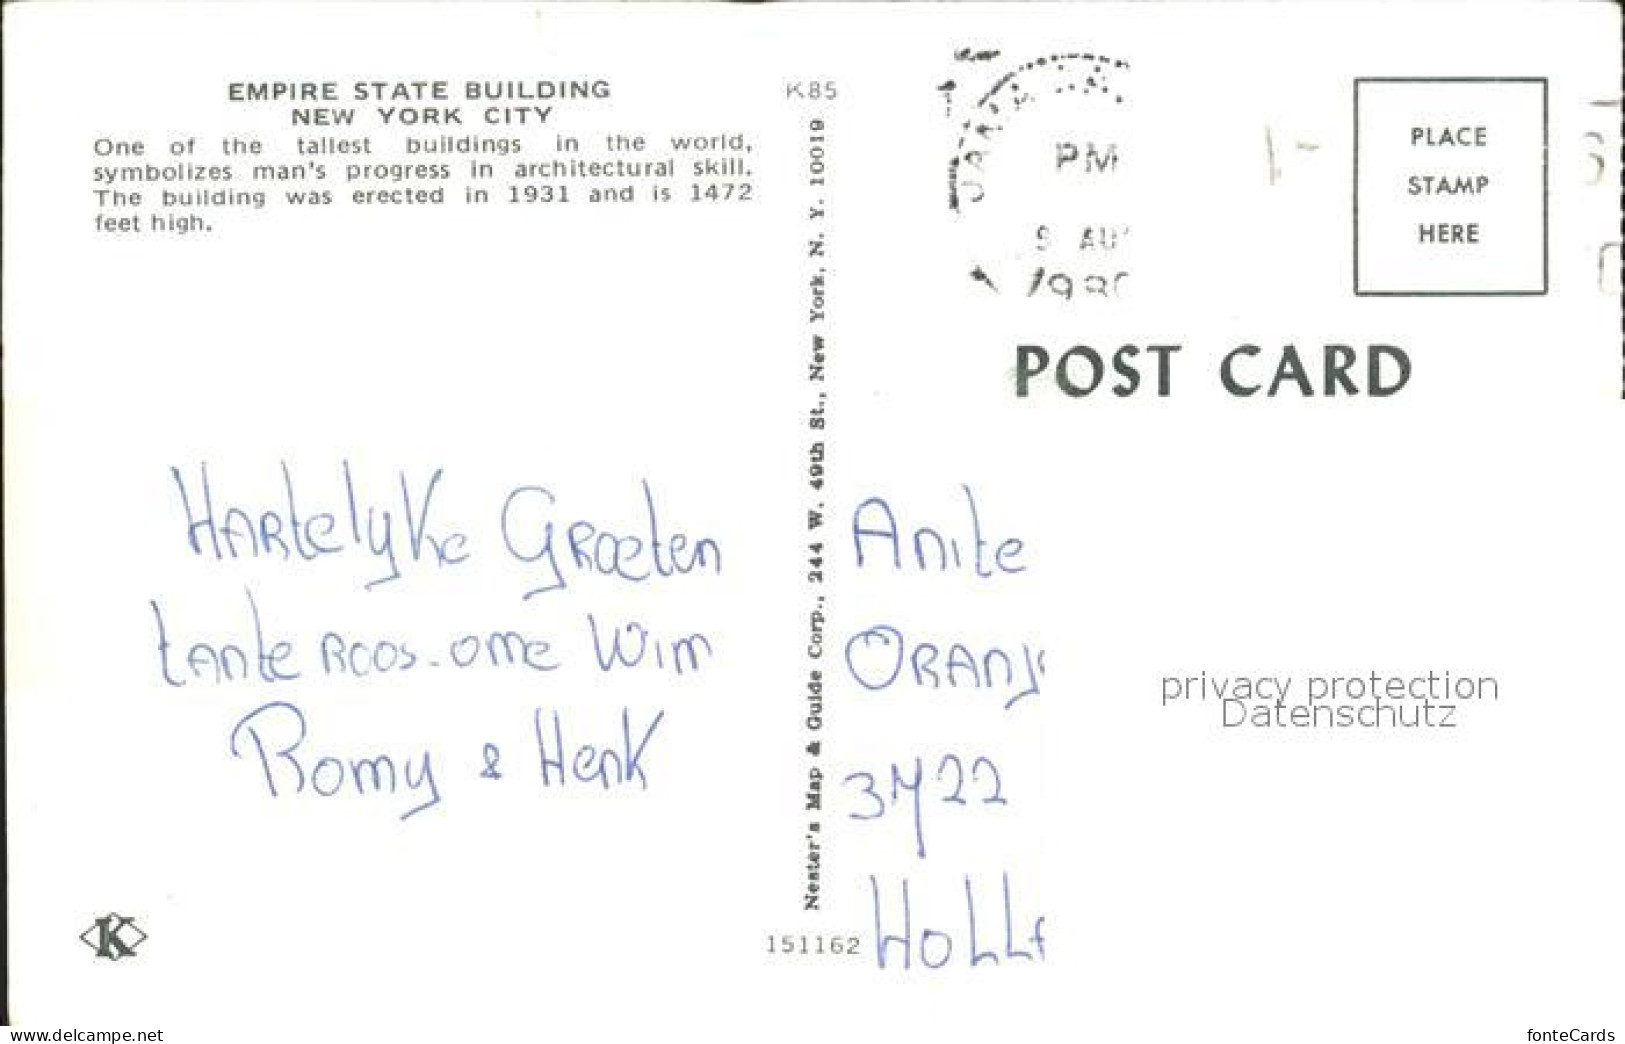 EMPIRE STATE BUILDING
NEW YORK CITY
One of the tallest buildings in the world,
symbolizes man's progress in architectural skill.
The building was erected in 1931 and is 1472
feet high.
HARtelyke GRoeten
tante Roos - ome Wim
Romy & Henk
K
K85
Nester's Map & Guide Corp., 244 W. 49th St., New York, N. Y. 10019
151162
PM
PLACE
STAMP
HERE
POST CARD
Anite
ORANJ
3722
HoLL
privacy protection
Datenschutz
www.delcampe.net
romy-home
fonteCards